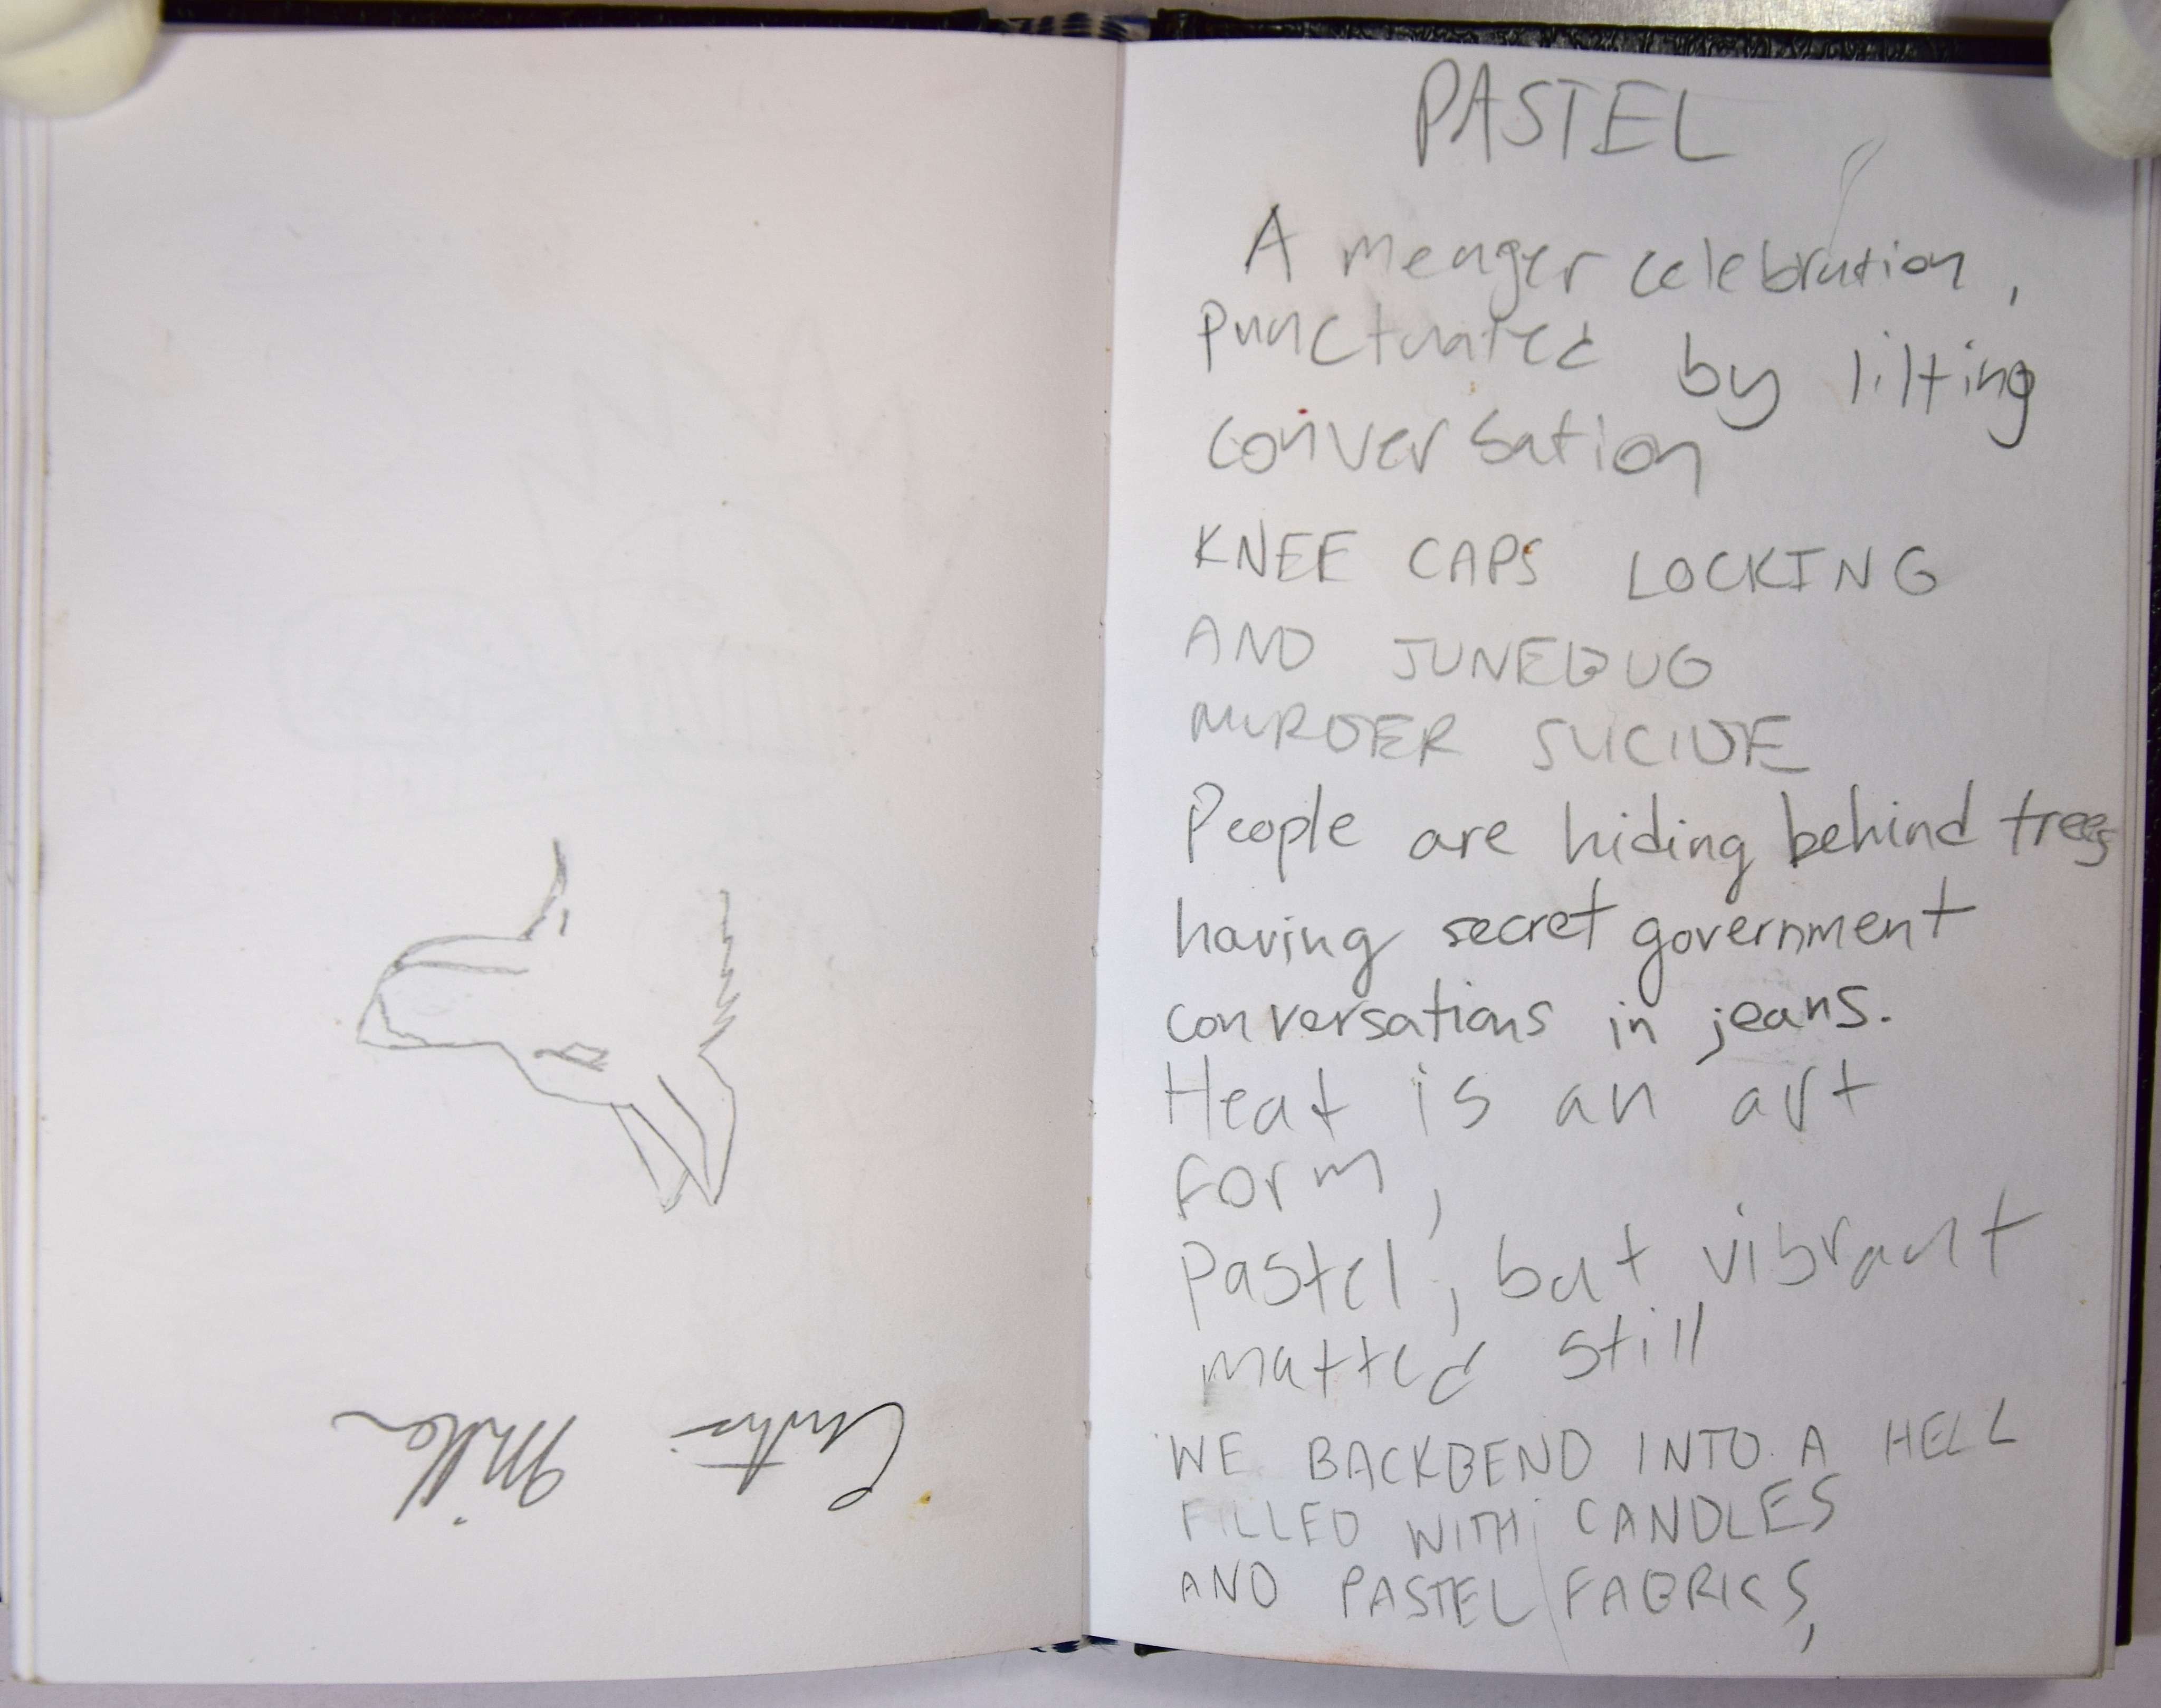 Miller
PASTEL
A meager celebration,
punctuated by lilting
conversation
KNEE CAPS LOCKING
AND JUNEBUG
MURDER SUICIDE
People are hiding behind trees
having secret government
conversations in jeans.
Heat is an art
form,
pastel, but vibrant
matted still
WE BACKBEND INTO A HELL
FILLED WITH CANDLES
AND PASTEL FABRICS,